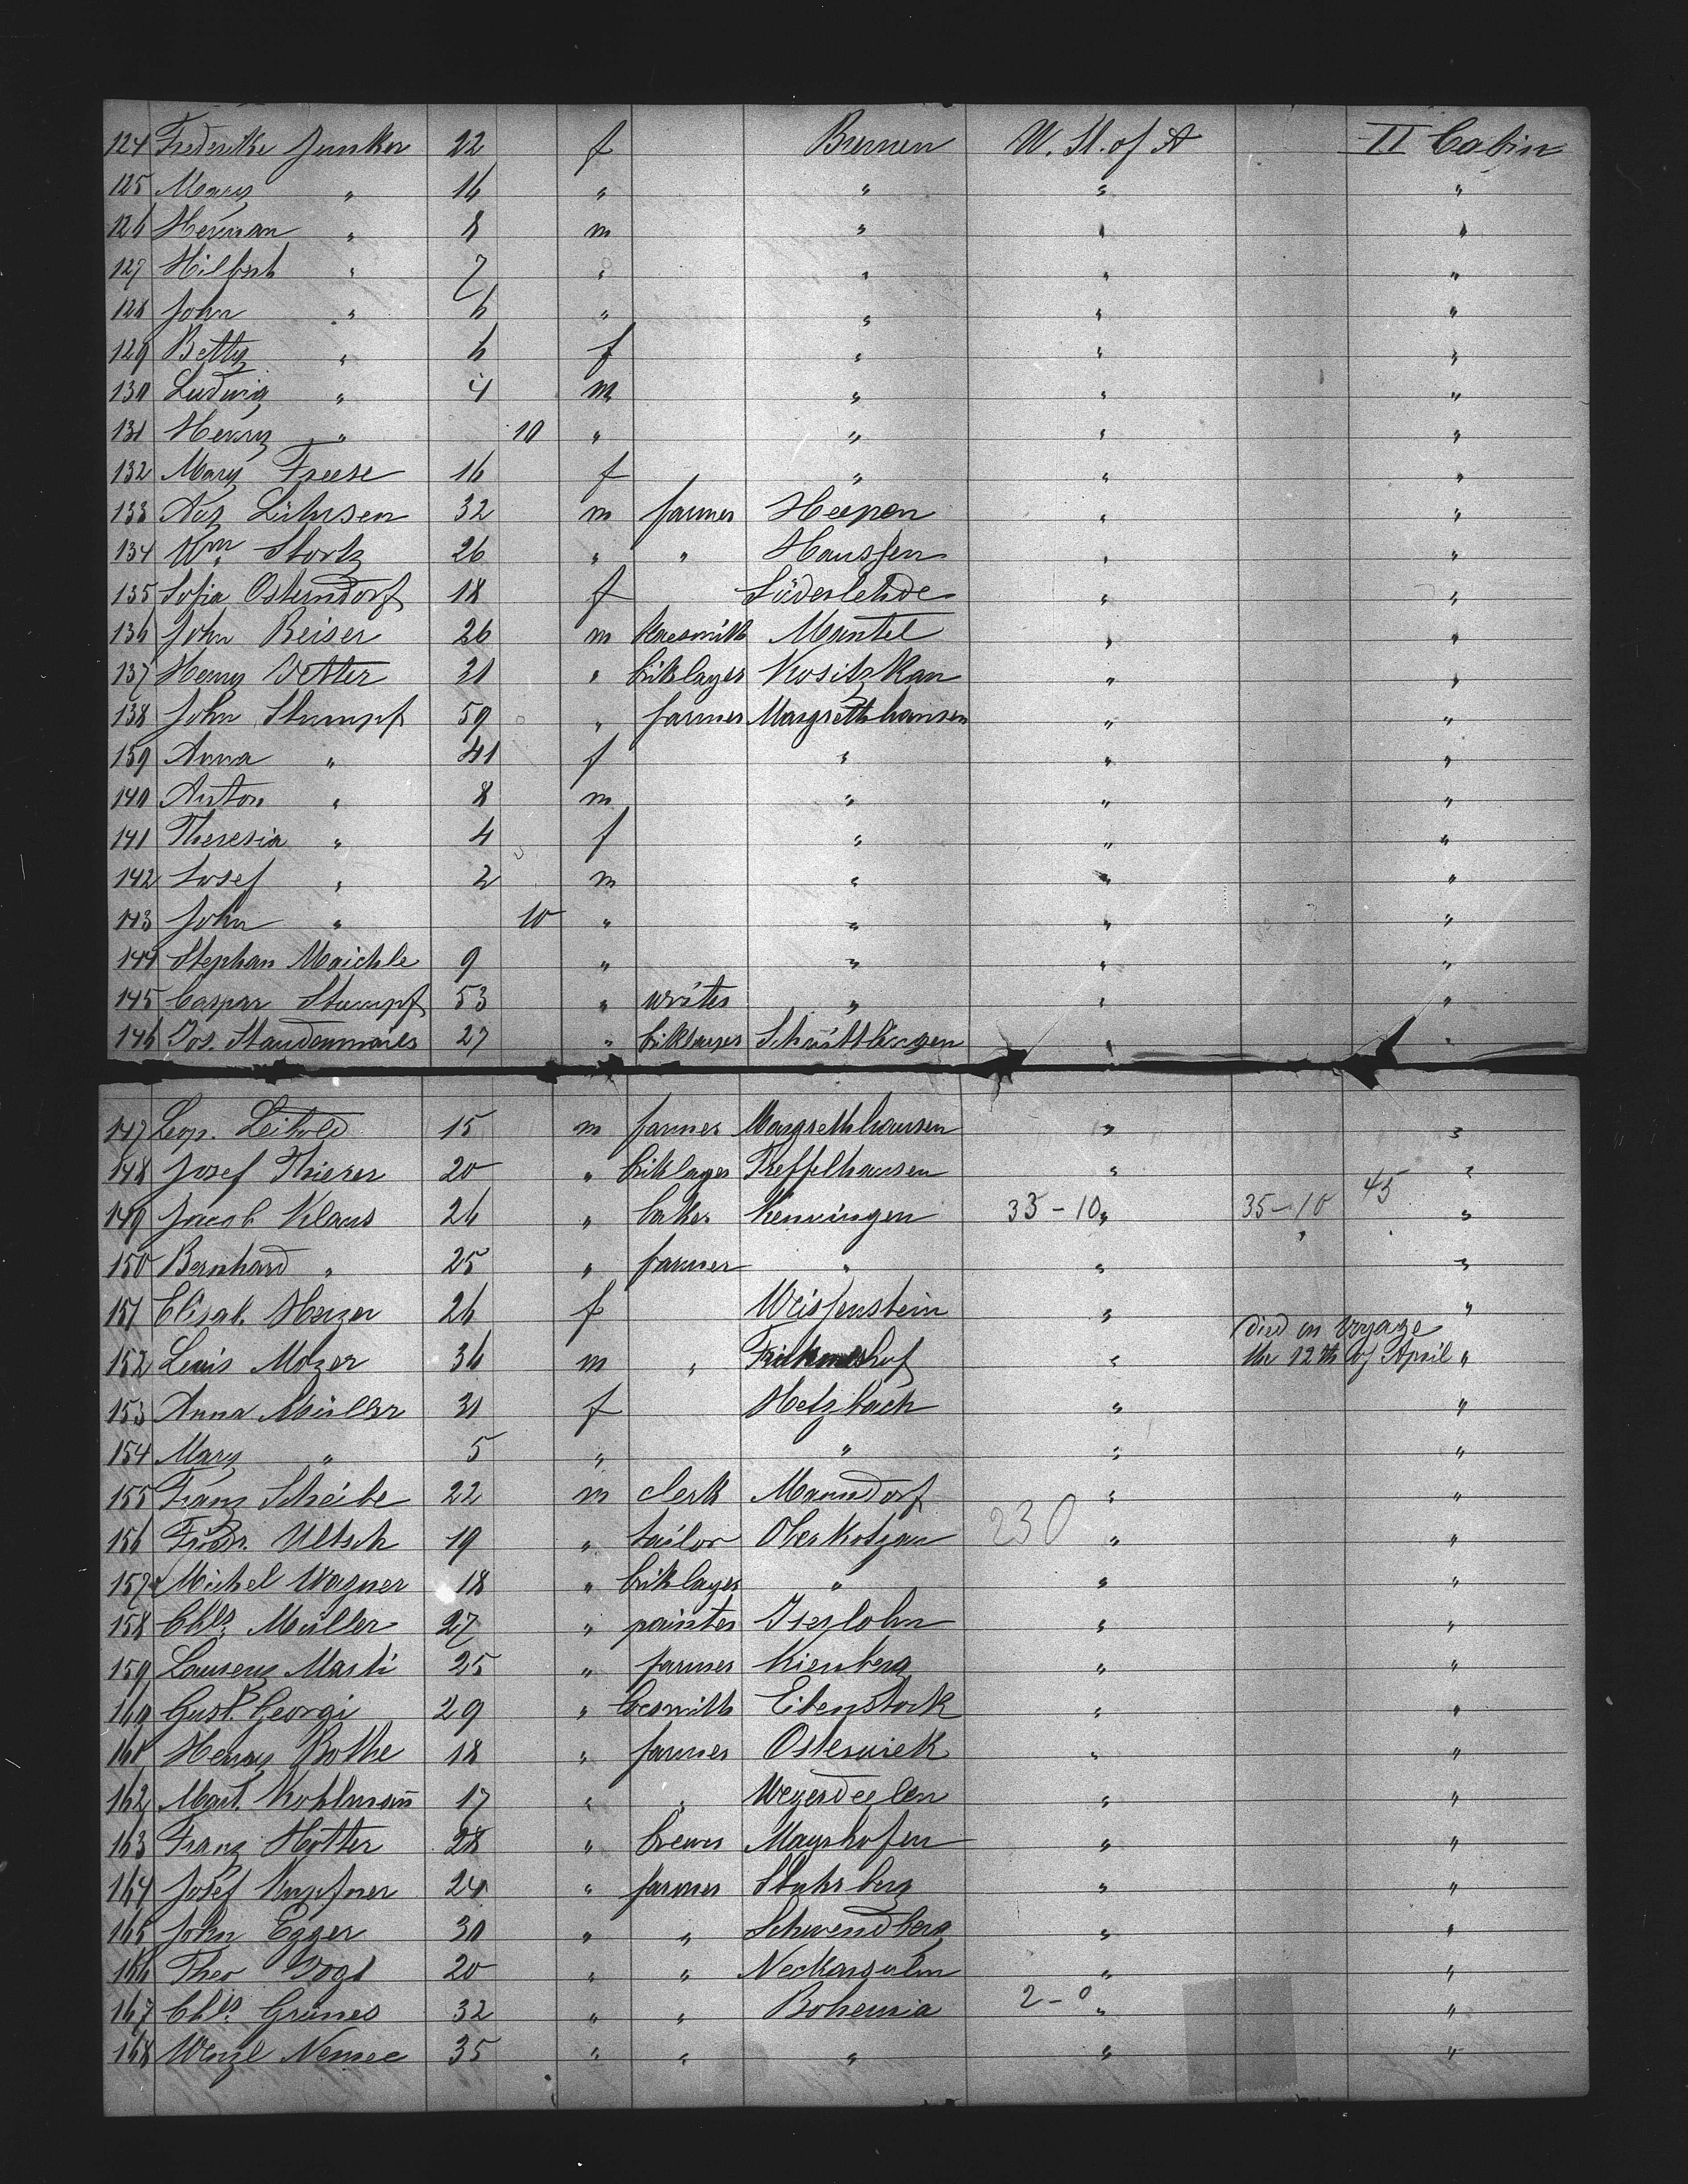 124 Frederike Junker 22 f Bremen U. St. of A II Cabin
125 Mary " 16 " " " "
126 Herman " 8 m " " "
127 " 7 " " " "
128 John " 6 " " " "
129 Betty " 6 f " " "
130 Ludwig " 4 m " " "
131 Henry " 10 " " " "
132 Mary Freese 16 f " " "
133 Aug Lührsen 32 m farmer Heepen " "
134 Wm. Stortz 26 " " Haussen " "
135 Sofia Osterndorf 18 f Süderlehde " "
136 John Beiser 26 m Mantel " "
137 Henry Vetter 21 " briklayer Kositzkau " "
138 John Stumpf 59 " farmer Margretthausen " "
139 Anna " 41 f " " "
140 Anton " 8 m " " "
141 Theresia " 4 f " " "
142 Josef " 2 m " " "
143 John " 10 " " " "
144 Stephan Maichle 9 " " " "
145 Caspar Stumpf 53 " writer " " "
146 Jos. Staudenmaier 27 " briklayer " "
147 Leop. Leibold 15 m farmer Margrethhausen " "
148 Josef Thierer 20 " briklayer Treffelhausen " "
149 Jacob Klaus 26 " baker Kenzingen 35-10 " 35-10 45 "
150 Bernhard " 25 " farmer " " "
151 Elisab. Herzer 26 f Weissenstein " "
152 Louis Mozer 36 m " " died on Voyage the 12th of April "
153 Anna Müller 31 f Hetzbach " "
154 Mary " 5 " " " "
155 Franz Scheibe 22 m clerk Manndorf " "
156 Friedr. Ultsch 19 " tailor Oberkotzau 230 " "
157 Michel Wagner 18 " briklayer " " "
158 Chls. Müller 27 " painter Iserlohn " "
159 Laurenz Marti 25 " farmer Kienberg " "
160 Gust. Georgi 29 " locsmith Eibenstock " "
161 Henry Bothe 18 " farmer Osterwiek " "
162 Mart. Kohlmann 17 " " Weyerdeelen " "
163 Franz Hotter 28 " brewer Mayrhofen " "
164 Josef Kupfner 24 " farmer " "
165 John Egger 30 " " Schwendberg " "
166 Theo Vogt 20 " " Neckarsulm " "
167 Chls. Grünes 32 " " Bohemia 2-0 " "
168 Wenzl Nemec 35 " " " " "